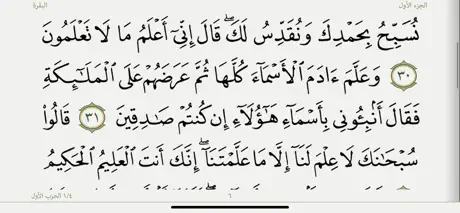 الجزء الأول البقرة
نُسَبِّحُ بِحَمْدِكَ وَنُقَدِّسُ لَكَۖ قَالَ إِنِّىٓ أَعْلَمُ مَا لَا تَعْلَمُونَ
٣٠ وَعَلَّمَ ءَادَمَ ٱلْأَسْمَآءَ كُلَّهَا ثُمَّ عَرَضَهُمْ عَلَى ٱلْمَلَـٰٓئِكَةِ
فَقَالَ أَنۢبِـُٔونِى بِأَسْمَآءِ هَـٰٓؤُلَآءِ إِن كُنتُمْ صَـٰدِقِينَ ٣١ قَالُوا۟
سُبْحَـٰنَكَ لَا عِلْمَ لَنَآ إِلَّا مَا عَلَّمْتَنَآۖ إِنَّكَ أَنتَ ٱلْعَلِيمُ ٱلْحَكِيمُ
٦ ١/٤ الحزب الأول